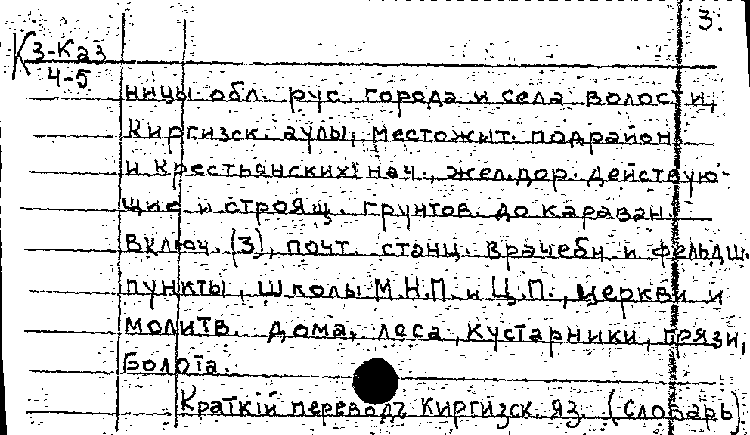 3.
К З-Каз
4-5
ницы обл. рус. города и села волости,
Киргизск. аулы, местожит. подрайон.
и крестьянских нач., жел.дор. действую-
щие и строящ. грунтов. до караван.
включ. (3), почт. станц. врачебн. и фельдш.
пункты, школы М.Н.П. и Ц.П., церкви и
молитв. дома, леса, кустарники, грязи,
болота.
Краткiй переводъ Киргизск. яз. (словарь)